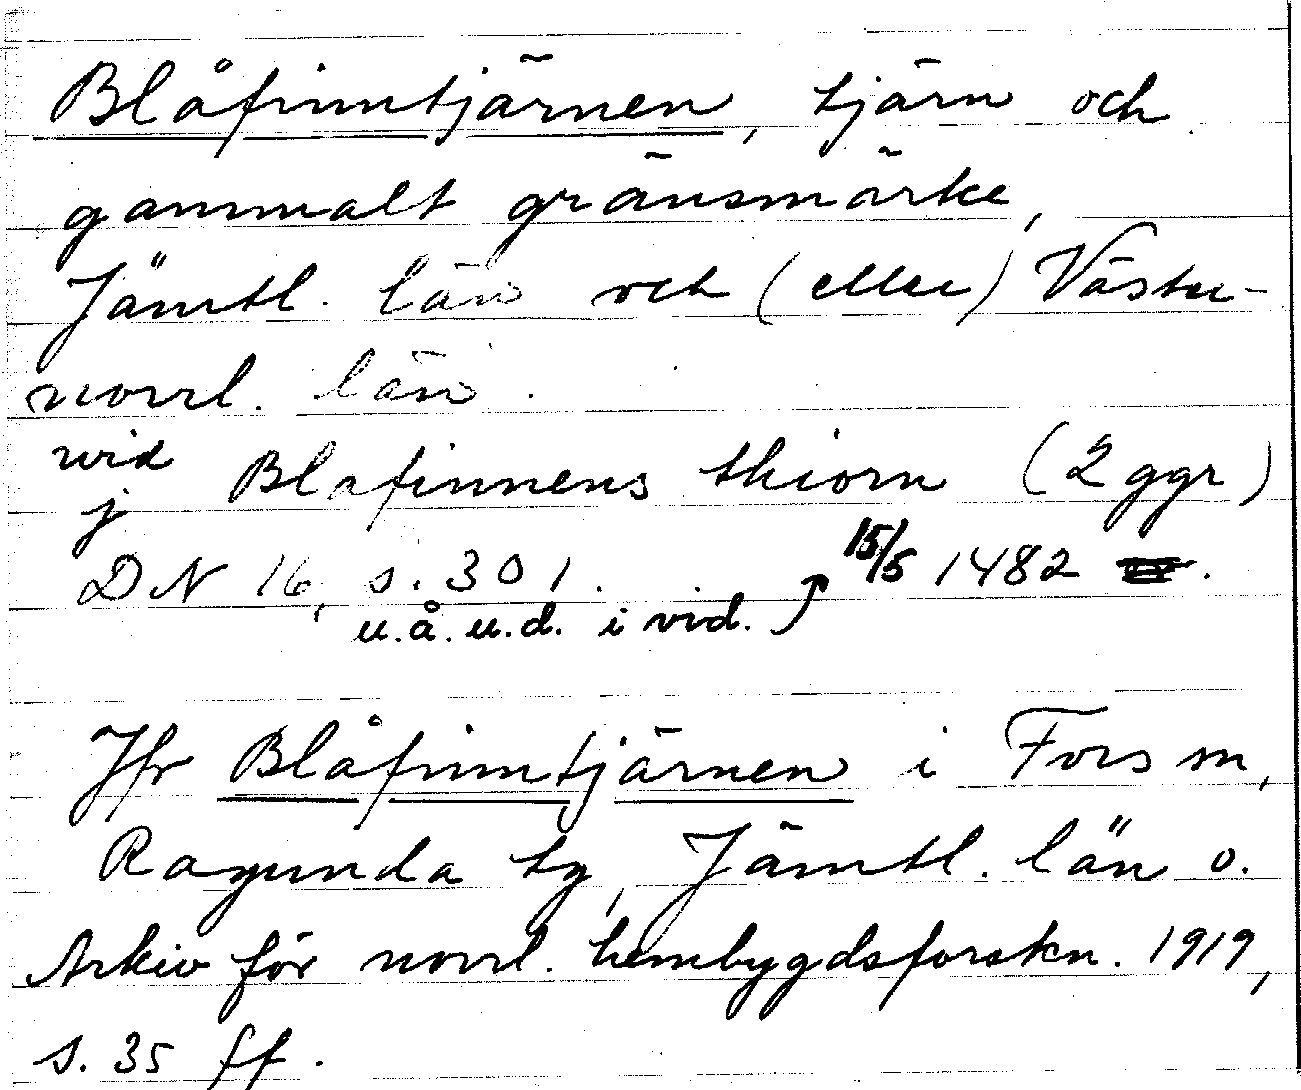 Blåfinntjärnen, tjärn och
gammalt gränsmärke,
Jämtl. län och (eller) Väster-
norrl. län.
wid
j Blafinnens thiorn (2 ggr)
DN 16, s. 301. 15/5 1482.
u.å. u.d. i vid.
Jfr Blåfinntjärnen i Fors sn,
Ragunda tg, Jämtl. län o.
Arkiv för norrl. hembygdsforskn. 1919,
s. 35 ff.